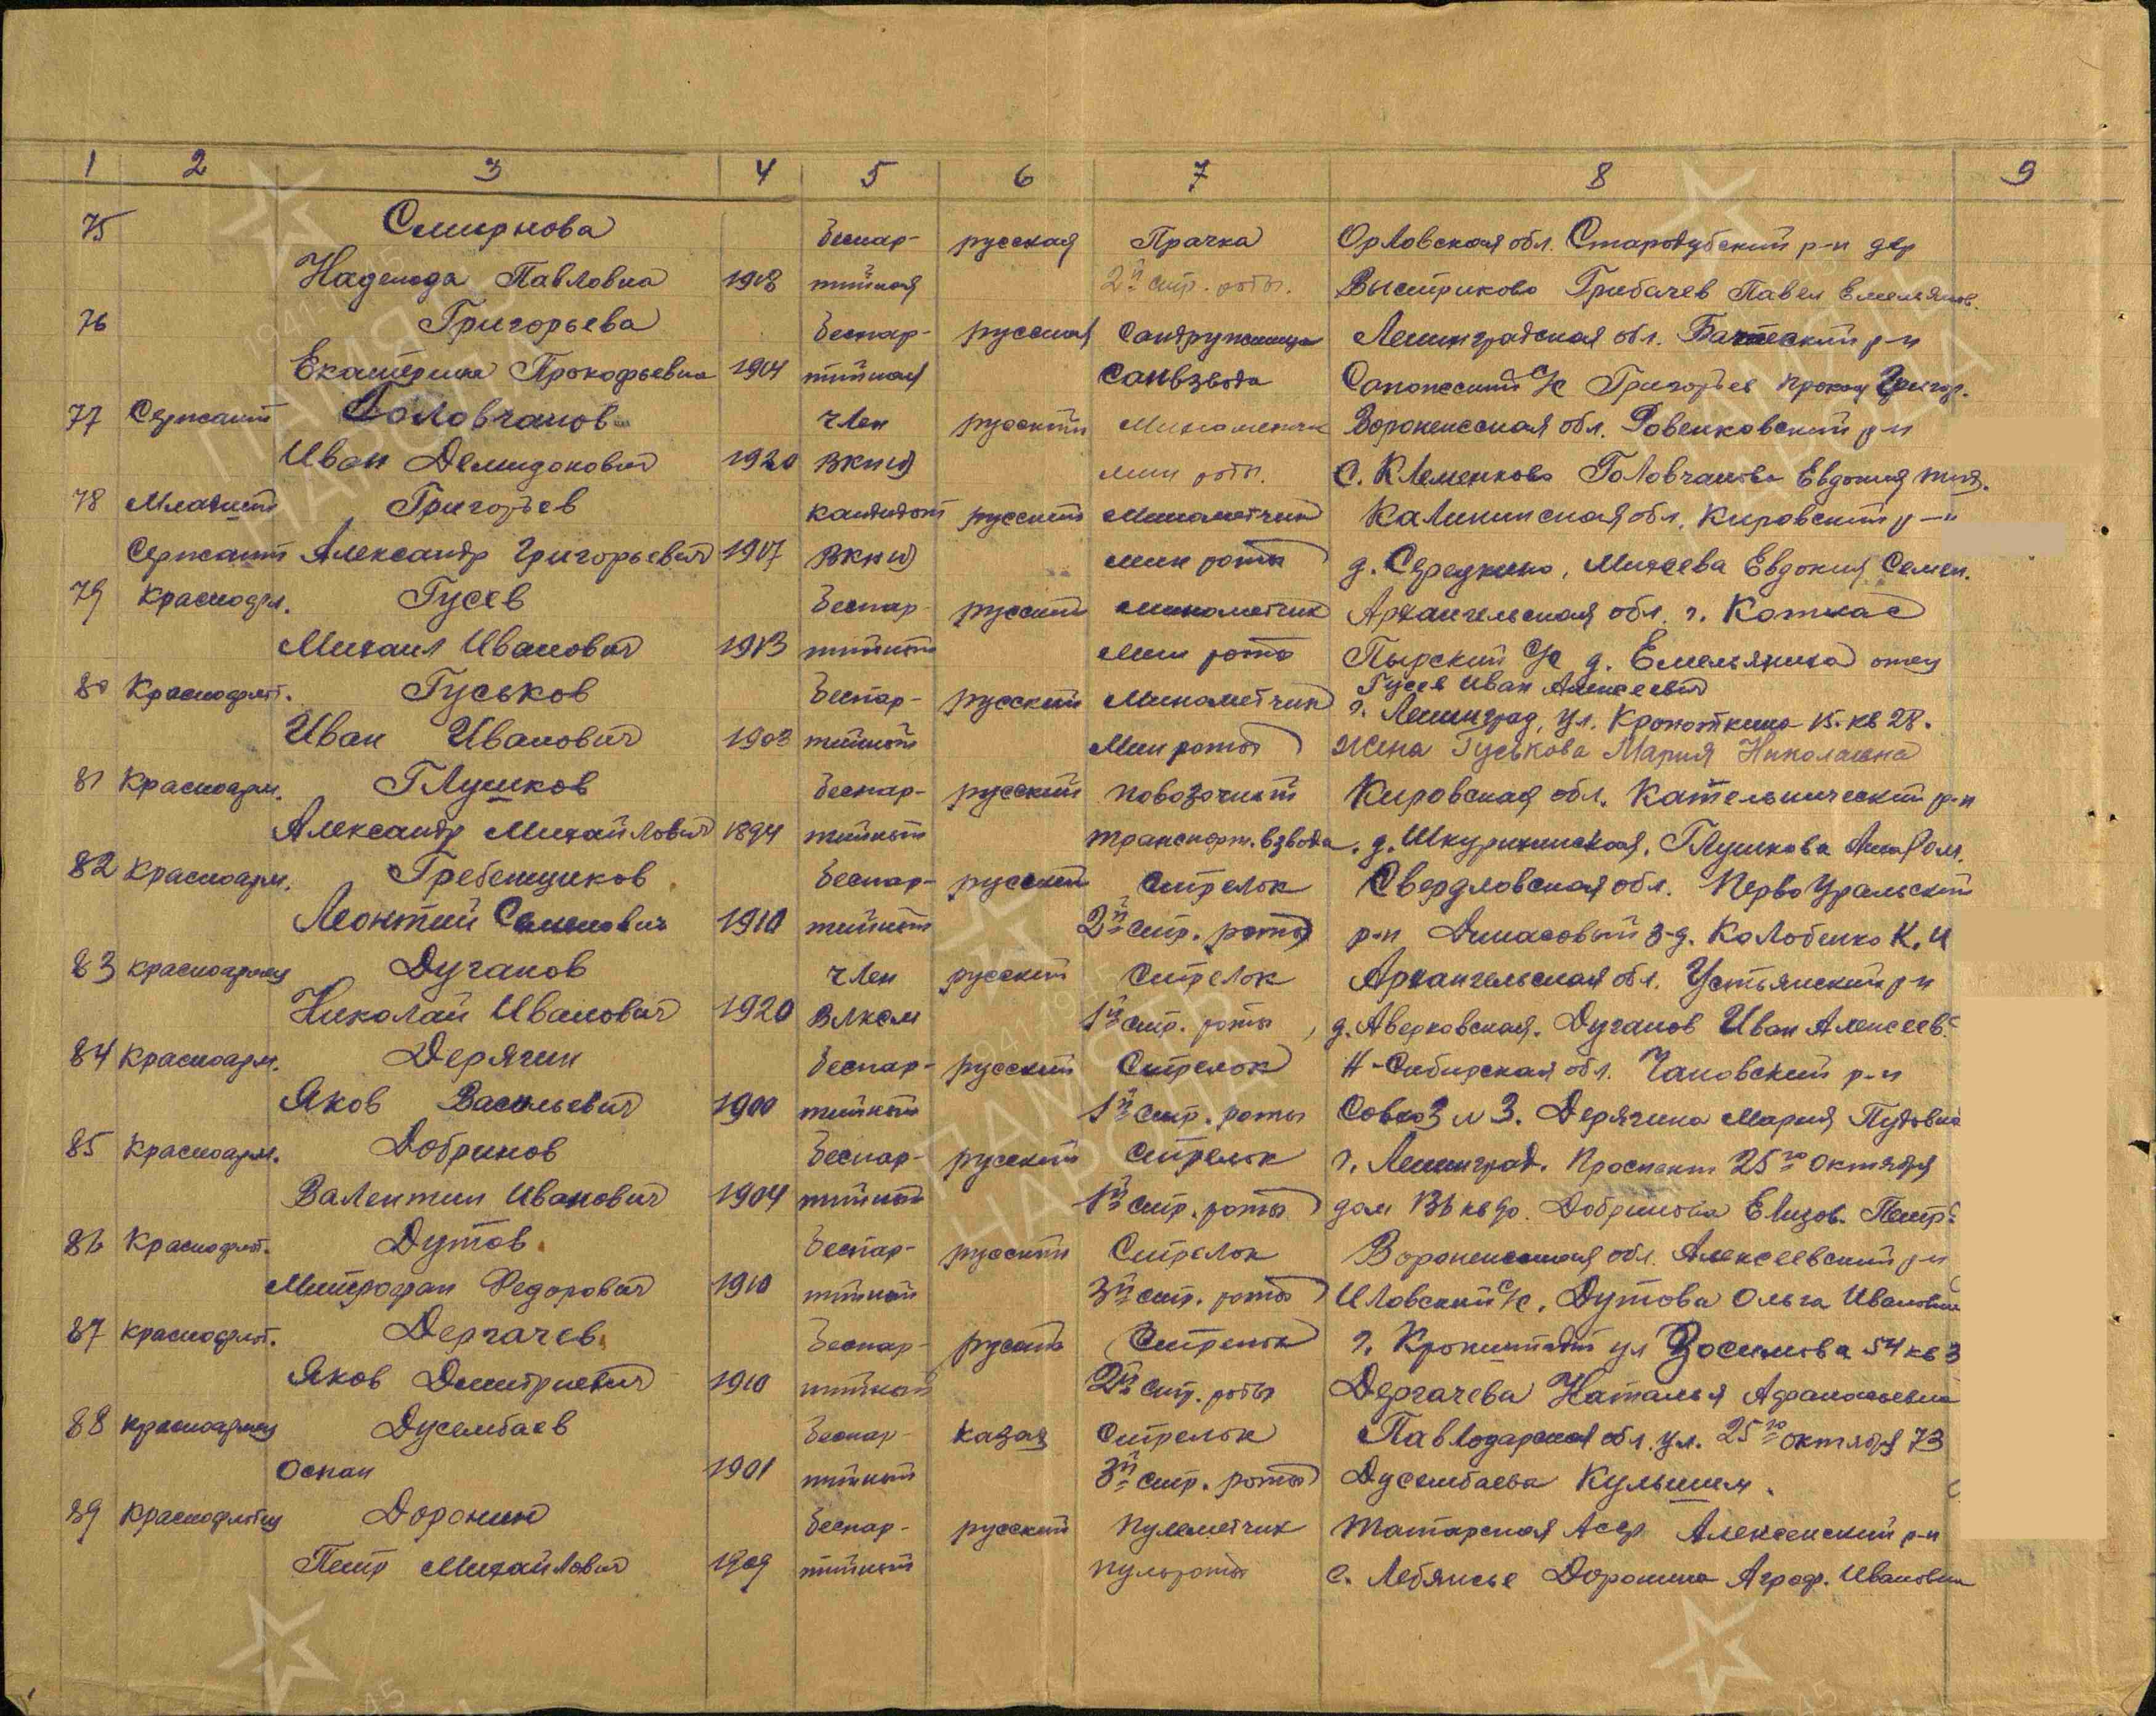 1 2 3 4 5 6 7 8 9
75 Смирнова беспар- русская Прачка Орловская обл. Стародубский р-н дер
Надежда Павловна 1918 тийная 2й стр. роты. Выстриково Грибачев Павел Емельянов.
76 Григорьева беспар- русская Сандружинница Ленинградская обл. Батецкий р-н
Екатерина Прокофьевна 1904 тийная Санвзвода с/с Григорьев Прокоф Григор.
77 Сержант Головчанов член русский Минометчик Воронежская обл. Ровенковский р-н
Иван Демидович 1920 ВКП(б) мин роты. с. Клименково Головчанова Евдокия
78 Младший Григорьев кандидат русский Минометчик Калининская обл. Кировский р-н
Сержант Александр Григорьевич 1907 ВКП(б) мин роты д. Середкино, Михеева Евдокия Семен.
79 Краснофл. Гусев беспар- русский минометчик Архангельская обл. г. Котлас
Михаил Иванович 1913 тийный мин роты Пырский с/с д. Емельяниха отец
Гусев Иван Алексеевич
80 Краснофлот. Гуськов беспар- русский Минометчик г. Ленинград, ул. Кропоткина 15. кв 28.
Иван Иванович 1903 тийный Мин роты жена Гуськова Мария Николаевна
81 Красноарм. Глушков беспар- русский повозочный Кировская обл. Котельнический р-н
Александр Михайлович 1894 тийный транспорт. взвода. д. Шкурихинская, Глушкова Анна Ром.
82 Красноарм. Гребенщиков беспар- русский Стрелок Свердловская обл. Первоуральский
Леонтий Семенович 1910 тийный 2й стр. роты р-н Динасовый з-д. Колобенко К. И
83 красноармец Дуганов член русский Стрелок Архангельская обл. Устьянский р-н
Николай Иванович 1920 ВЛКСМ 1й стр. роты, д. Аверковская. Дуганов Иван Алексеев.
84 Красноарм. Дерягин беспар- русский Стрелок Н-Сибирская обл. Чановский р-н
Яков Васильевич 1900 тийный 1й стр. роты Совхоз № 3. Дерягина Мария Пудовна
85 Красноарм. Добринов беспар- русский Стрелок г. Ленинград. Проспект 25го Октября
Валентин Иванович 1904 тийный 1й стр. роты дом 136 кв 90. Добринова Елизов. Петр.
86 Краснофлот. Дутов беспар- русский Стрелок Воронежская обл. Алексеевский р-н
Митрофан Федорович 1910 тийный 3й стр. роты Иловский с/с, Дутова Ольга Ивановна
87 краснофлот. Дергачев беспар- русский Стрелок г. Кронштадт ул Зосимова 54 кв 3
Яков Дмитриевич 1910 тийный 2й стр. роты Дергачева Наталья Афанасьевна
88 красноармец Дусембаев беспар- казах Стрелок Павлодарская обл. ул. 25го октября 73
Оспан 1901 тийный 3й стр. роты Дусембаева Кульшим.
89 Краснофлотец Доронин беспар- русский пулеметчик Татарская Асср Алексеевский р-н
Петр Михайлович 1909 тийный пульроты с. Лебяжье Доронина Аграф. Ивановн